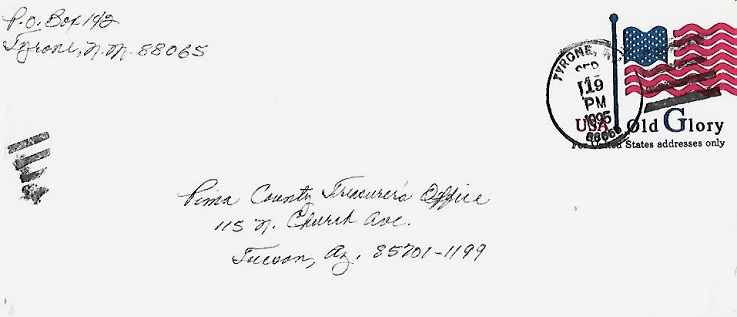 P.O. Box 142
Tyrone, N.M. 88065
TYRONE, N
SEP
19
PM
1995
88065
USA Old Glory
For United States addresses only
Pima County Treasurer's Office
115 N. Church Ave.
Tucson, Az. 85701-1199